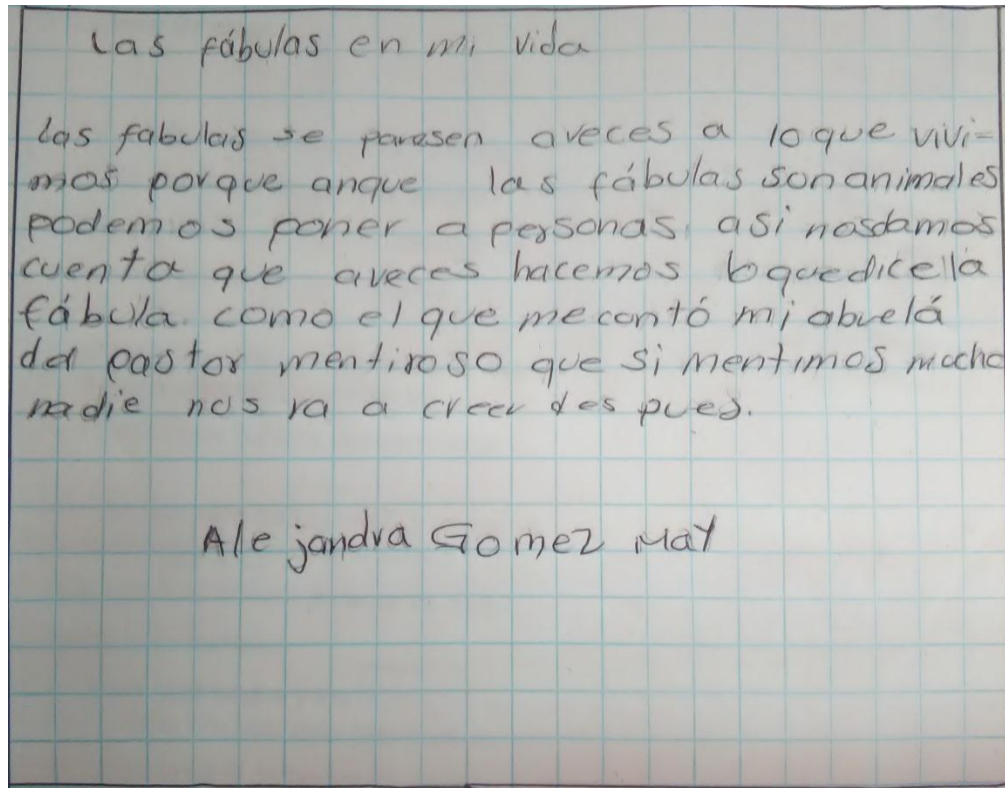 Las fábulas en mi vida
las fabulas se parasen aveces a loque vivi=
mos porque anque las fábulas son animales
podemos poner a personas, asi nosdamos
cuenta que aveces hacemos loquedicella
fábula. como el que mecontó mi abuelá
del pastor mentiroso que si mentimos mucho
nadie nos va a creer des pues.
Alejandra Gomez May